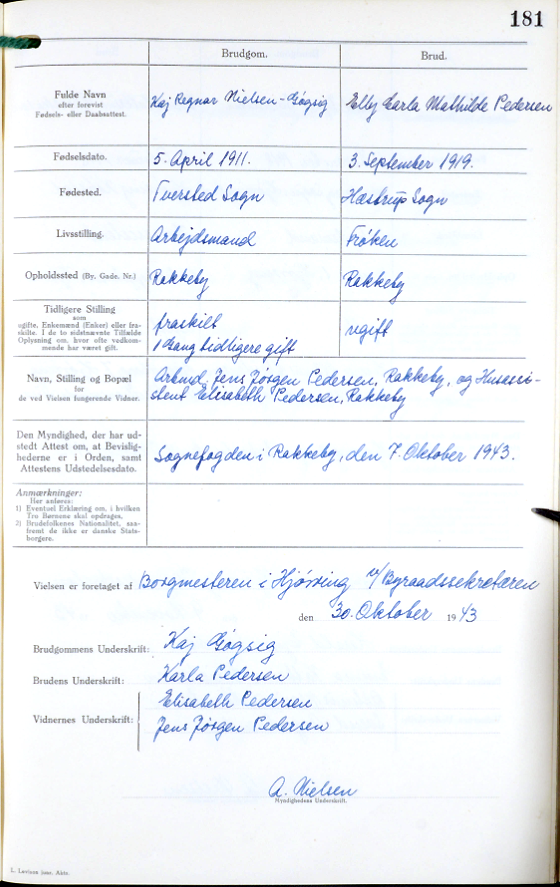 181
Brudgom. Brud.
Fulde Navn
efter forevist
Fødsels- eller Daabsattest.
Kaj Regnar Nielsen-Gøgsig Elly Carla Mathilde Pedersen
Fødselsdato. 5. April 1911. 3. September 1919.
Fødested. Tversted Sogn Hæstrup Sogn
Livsstilling. Arbejdsmand Frøken
Opholdssted (By. Gade. Nr.) Rakkeby Rakkeby
Tidligere Stilling
som
ugifte, Enkemænd (Enker) eller fra-
skilte. I de to sidstnævnte Tilfælde
Oplysning om, hvor ofte vedkom-
mende har været gift.
fraskilt ugift
1 Gang tidligere gift
Navn, Stilling og Bopæl
for
de ved Vielsen fungerende Vidner.
Arbmd. Jens Jørgen Pedersen, Rakkeby, og Husassi-
stent Elisabeth Pedersen, Rakkeby
Den Myndighed, der har ud-
stedt Attest om, at Bevislig-
hederne er i Orden, samt
Attestens Udstedelsesdato.
Sognefogden i Rakkeby, den 7. Oktober 1943.
Anmærkninger:
Her anføres:
1) Eventuel Erklæring om, i hvilken
Tro Børnene skal opdrages.
2) Brudefolkenes Nationalitet, saa-
fremt de ikke er danske Stats-
borgere.
Vielsen er foretaget af Borgmesteren i Hjørring v/Byraadssekretæren
den 30. Oktober 1943
Brudgommens Underskrift: Kaj Gøgsig
Brudens Underskrift: Karla Pedersen
Vidnernes Underskrift: Elisabeth Pedersen
Jens Jørgen Pedersen
A. Nielsen
Myndighedens Underskrift.
L. Levison junr. Akts.